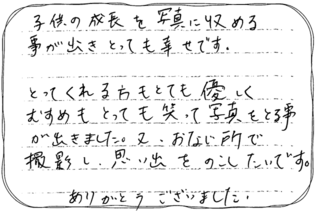 子供の成長を写真に収める
事が出きとっても幸せです.
とってくれる方もとても優しく
むすめもとっても笑って写真をとる事
が出きました。又、おなじ所で
撮影し、思い出をのこしたいです。
ありがとうございました.